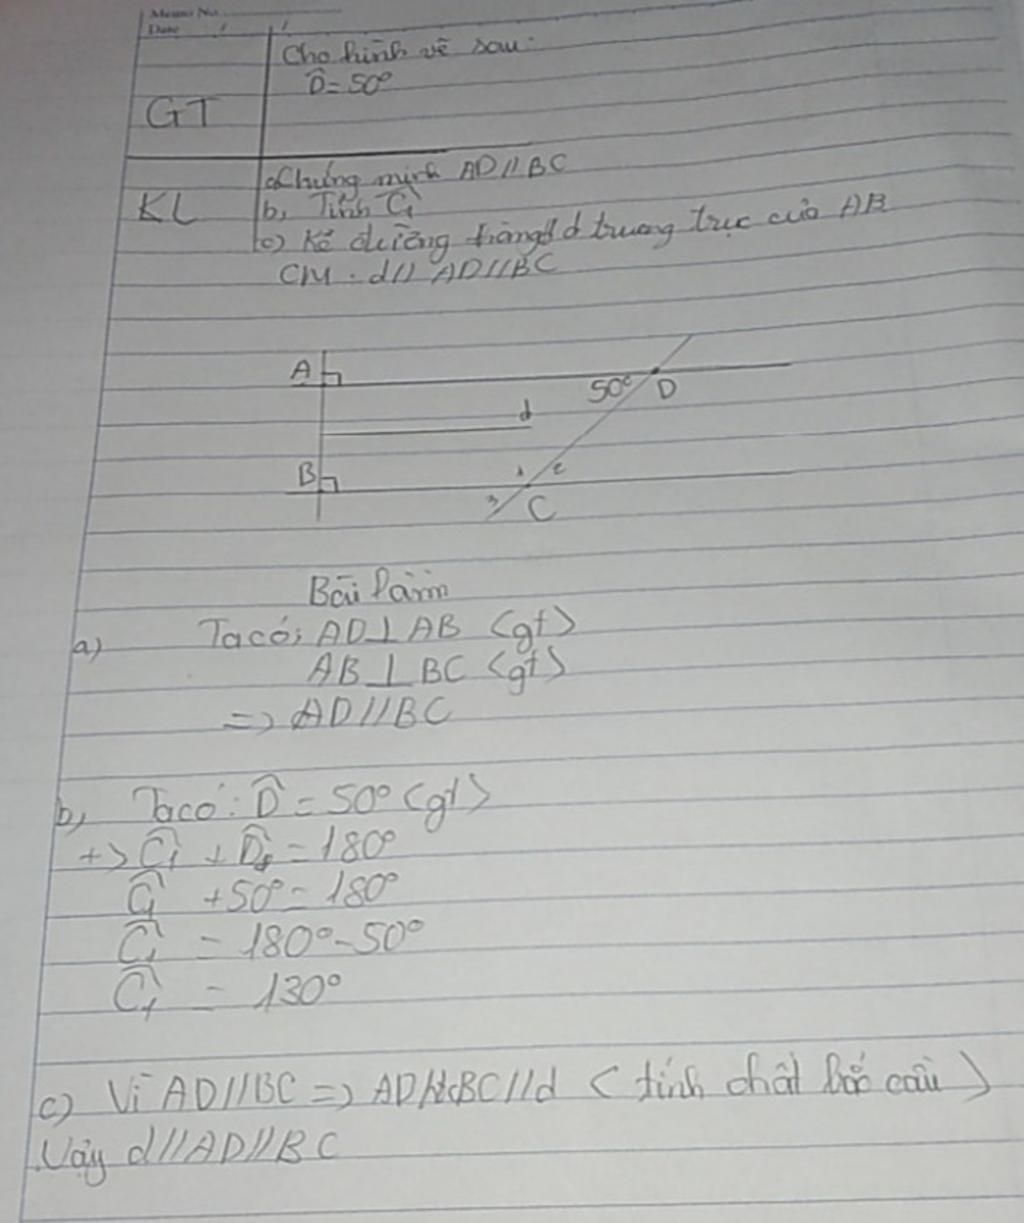 Memo No.
Date / /
Cho hình vẽ sau:
D̂ = 50°
GT
a) Chứng minh AD // BC
KL
b, Tính Ĉ₁
c) Kẻ đường thẳng d trung trực của AB
CM: d // AD // BC
A
50° D
d
B
1 2
3 C
Bài làm
a) Ta có: AD ⊥ AB <gt>
AB ⊥ BC <gt>
=> AD // BC
b, Ta có: D̂ = 50° <gt>
+> Ĉ₁ + D̂₁ = 180°
Ĉ₁ + 50° = 180°
Ĉ₁ = 180° - 50°
Ĉ₁ = 130°
c) Vì AD // BC => AD // BC // d < tính chất bắc cầu >
Vậy d // AD // BC